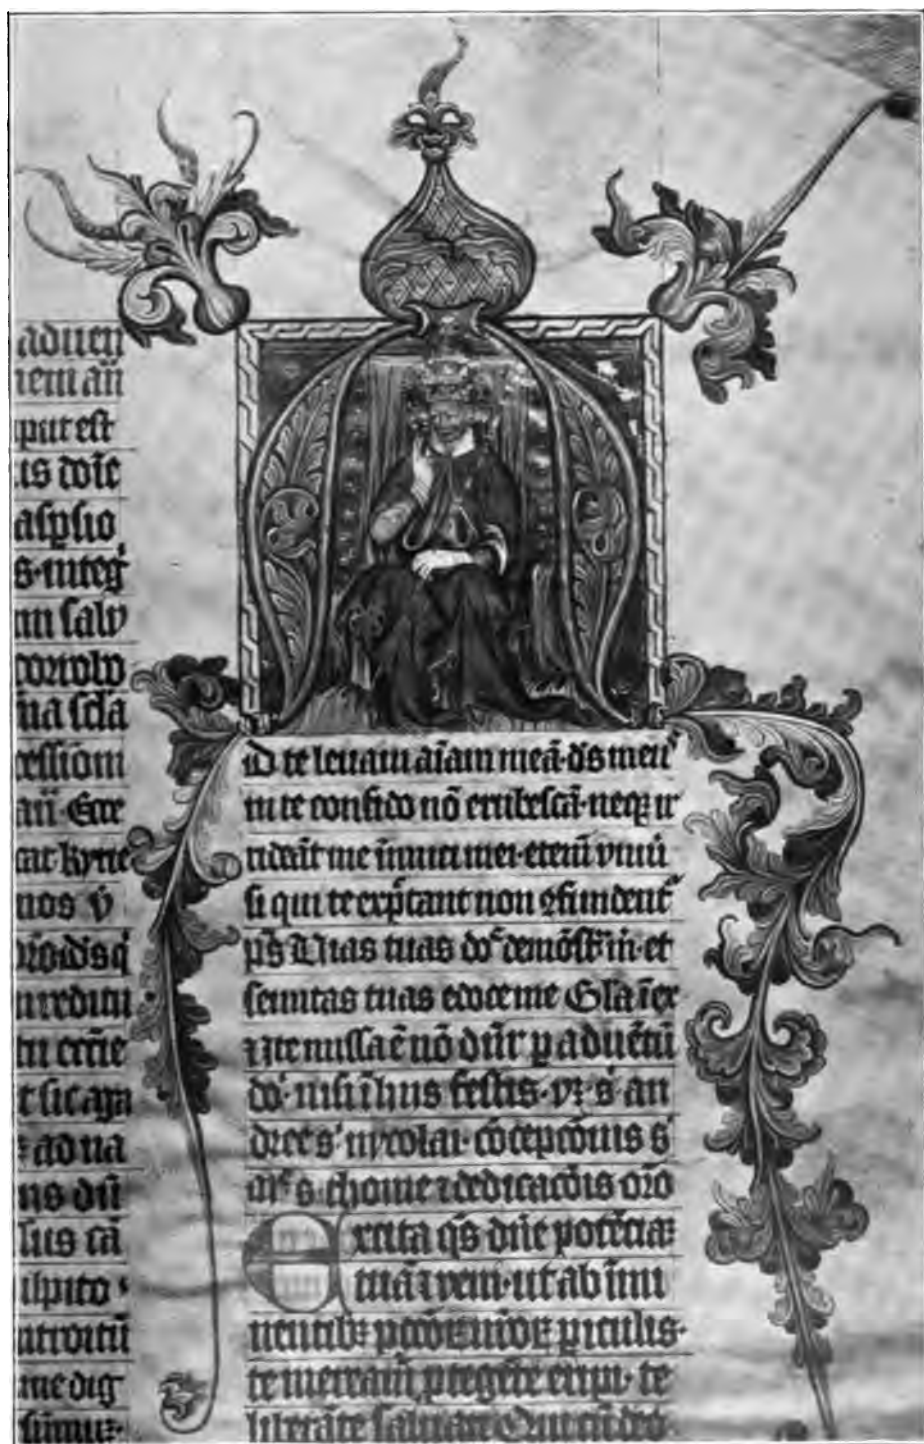 aduen
nem añ
put est
us doīe
aspsio
s·integ
m salv
ña scla
cessioni
añ· Ecce
tat kyrie
nos v̇
n reditu
t sic aga
ad na
ns dūi
sus cā
ulpito
ntroitū
me dig
sūmuz·
D te levavi aīam meā· ds̄ meus
in te confido nō erubescā· neqꝫ ir
rideāt me inimici mei· eteni̅ univ̄
si qui te exp̄tant non ꝯfundent᷒
p̄s Vias tuas do᷒ demōst᷒ m̄· et
semitas tuas edoce me Gl̄a ī ex
missa ē nō dūr̄ p aduētū
do᷒· nisi ī hiis festis· vꝫ· s᷒· an
dree s᷒ nycolai· cōcepcōnis s᷒
mᵉ s· thome ⁊ dedicacōis orō
Excita q̄s dn̄e potēciaꝫ
tuā ⁊ veni· ut ab īmi
nentibꝫ pccōꝝ nr̄oꝝ piculis·
te meream̄ ꝓtegēte eripi· te
liberāte salvari Qui cū deo·